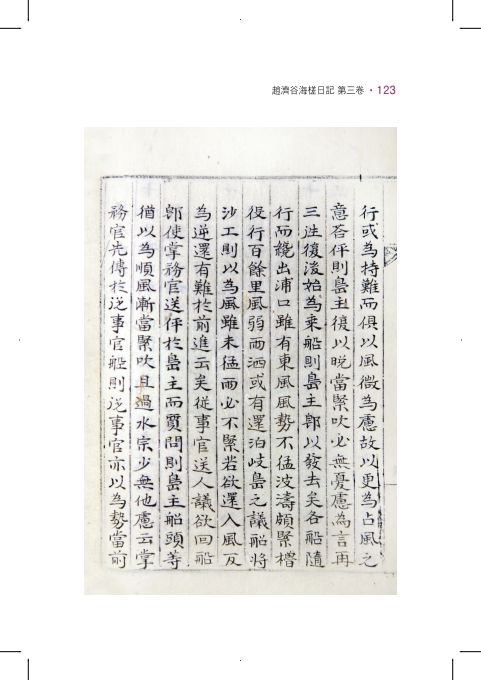 趙濟谷海槎日記 第三卷 · 123
行或為持難而俱以風微為慮故以更為占風之
意荅伻則島主復以晩當緊吹必無憂慮為言再
三徃復後始為乘船則島主郎以發去矣各船隨
行而纔出浦口雖有東風風勢不猛波濤頗緊櫓
役行百餘里風弱而洒或有還泊岐島之議船將
沙工則以為風雖未猛而必不緊若欲還入風反
為逆還有難於前進云矣從事官送人議欲回船
郎使掌務官送伻於島主而質問則島主船頭等
猶以為順風漸當緊吹且過水宗少無他慮云掌
務官先傳於從事官船則從事官亦以為勢當前